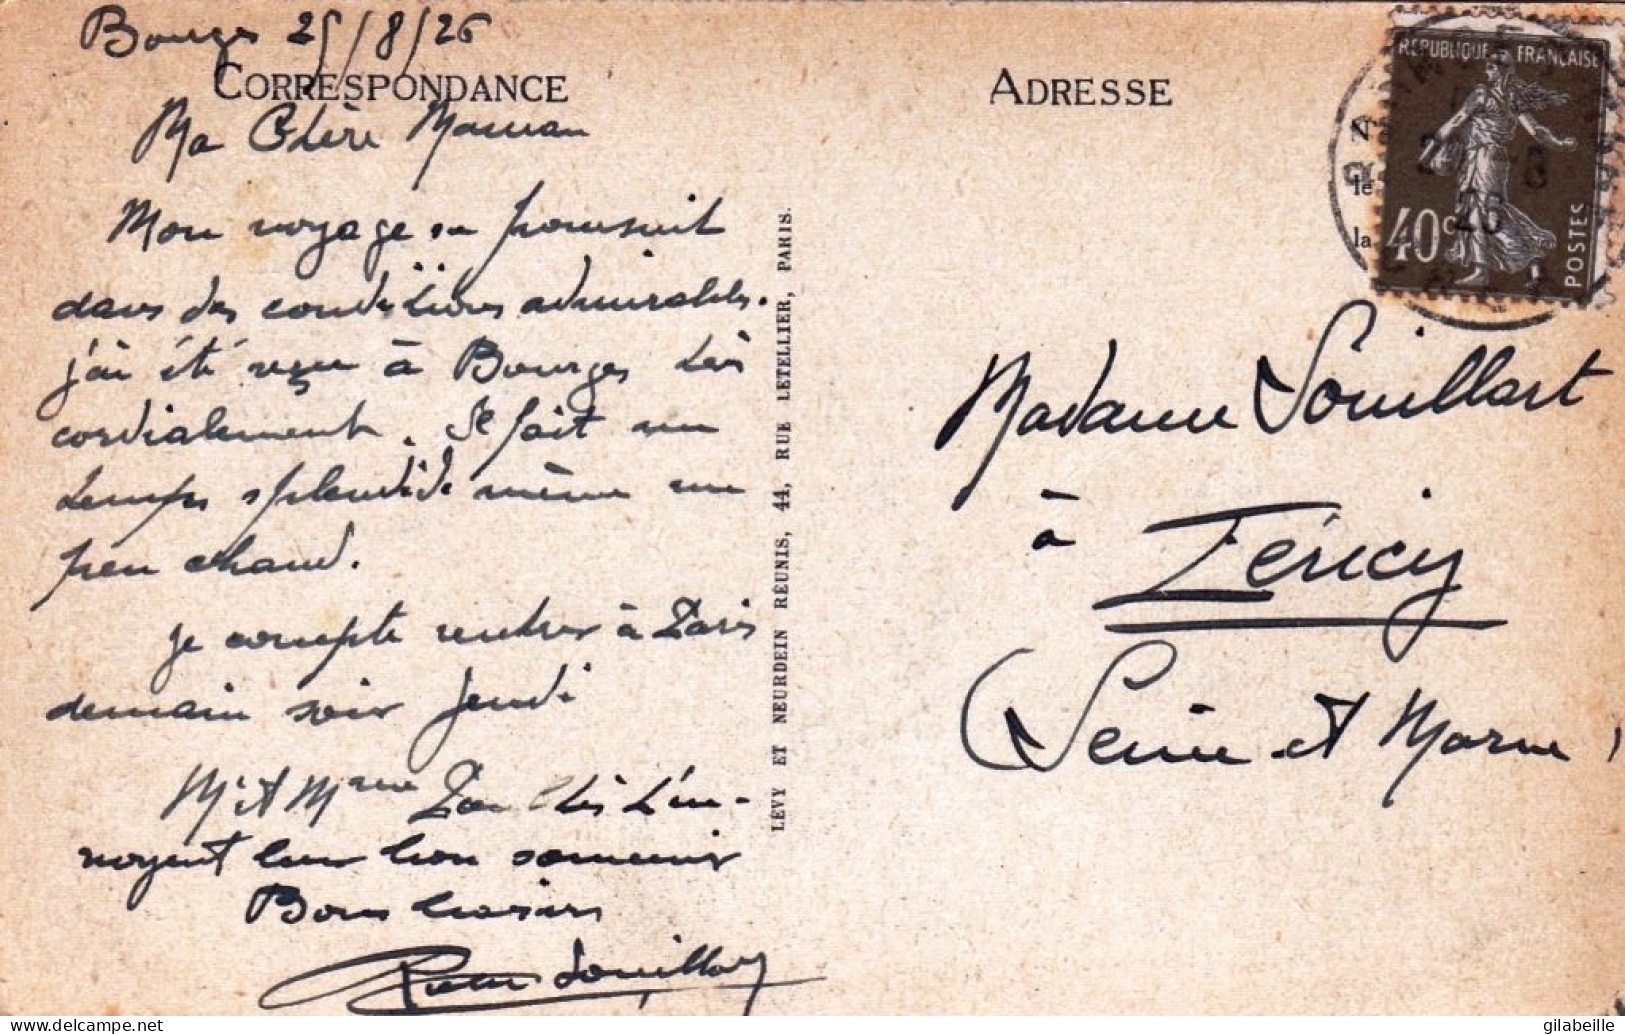 Bourges 25/8/26
CORRESPONDANCE
Ma Chère Maman
Mon voyage se poursuit
dans des conditions admirables.
j'ai été reçu à Bourges très
cordialement. Il fait un
temps splendide même un
peu chaud.
Je compte rentrer à Paris
demain soir Jeudi
Mr et Mme t'en-
voyent leur bon souvenir
Bons baisers
Souillart
LEVY ET NEURDEIN RÉUNIS, 44, RUE LETELLIER, PARIS.
ADRESSE
RÉPUBLIQUE FRANÇAISE
40c
POSTES
26
le
la
Madame Souillart
à Féricy
(Seine et Marne)
gilabeille